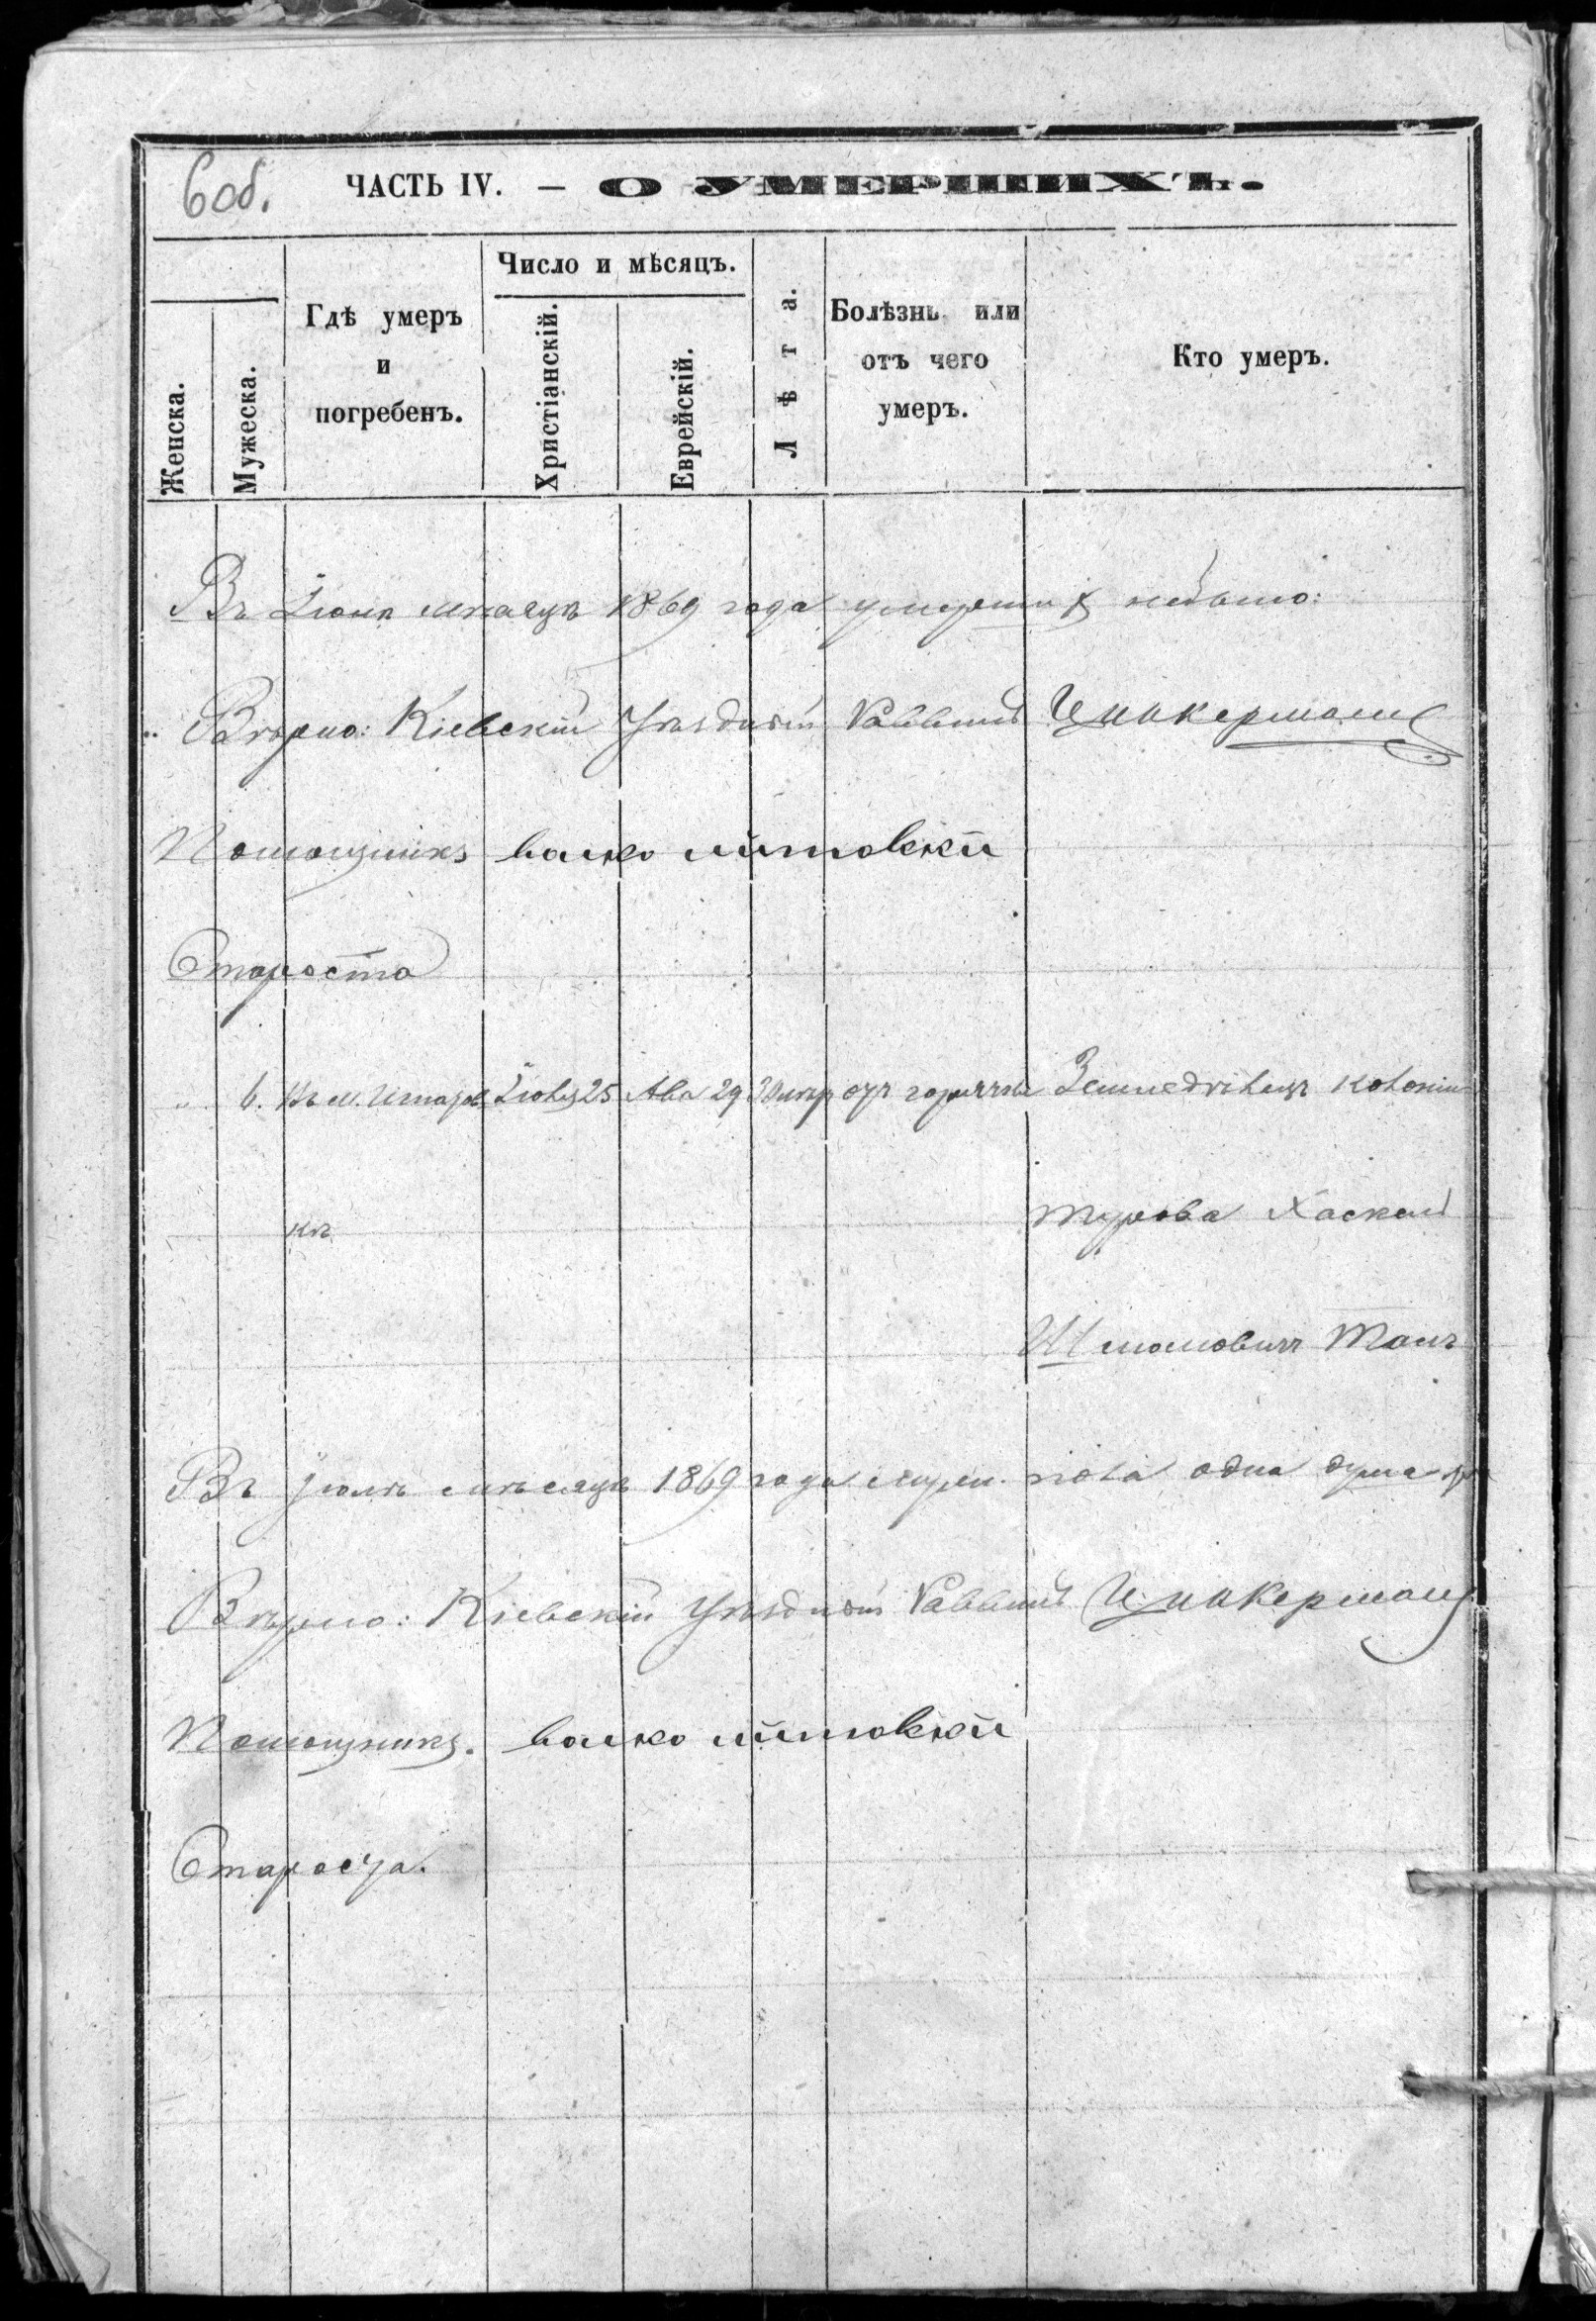 6 об.
ЧАСТЬ IV. — О УМЕРШИХЪ.
Женска.
Мужеска.
Гдѣ умеръ и погребенъ.
Число и мѣсяцъ.
Христіанскій.
Еврейскій.
Лѣта.
Болѣзнь или отъ чего умеръ.
Кто умеръ.
Въ Іюнѣ мѣсяцѣ 1869 года умершихъ небыло:
Вѣрно: Кіевскій Уѣздный Раввинъ Цукерманъ
Помощникъ
Староста
6. Въ м. Игнатов Іюля 25 Ава 29 отъ горячки Земледѣлецъ колоніи
кѣ Турова Хаскель
Шмаловичъ
Въ Іюлѣ мѣсяцѣ 1869 года муж. пола одна душа
Вѣрно: Кіевскій Уѣздный Раввинъ Цукерманъ
Помощникъ.
Староста.